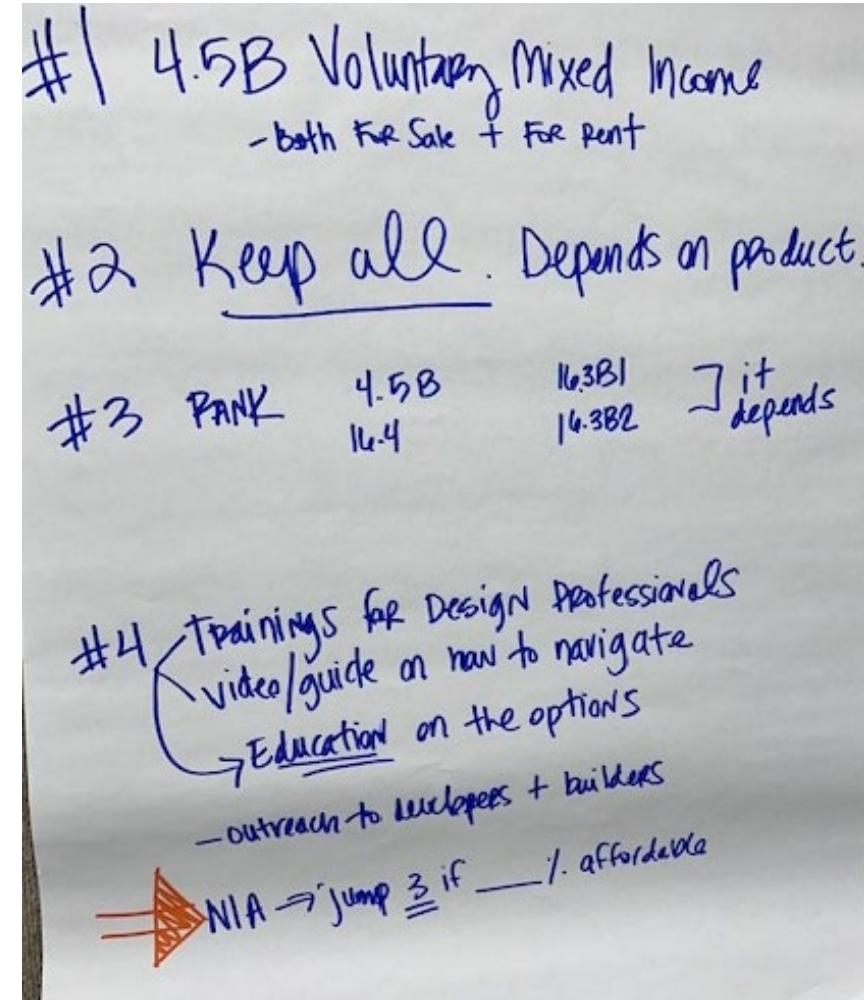 #1 4.5B Voluntary Mixed Income
- Both For Sale + For Rent
#2 Keep all. Depends on product.
#3 RANK 4.5B 16.3B1 ] it
16.4 16.3B2 depends
#4 Trainings for Design Professionals
video/guide on how to navigate
→ Education on the options
- outreach to developers + builders
NIA → jump 3 if ___% affordable